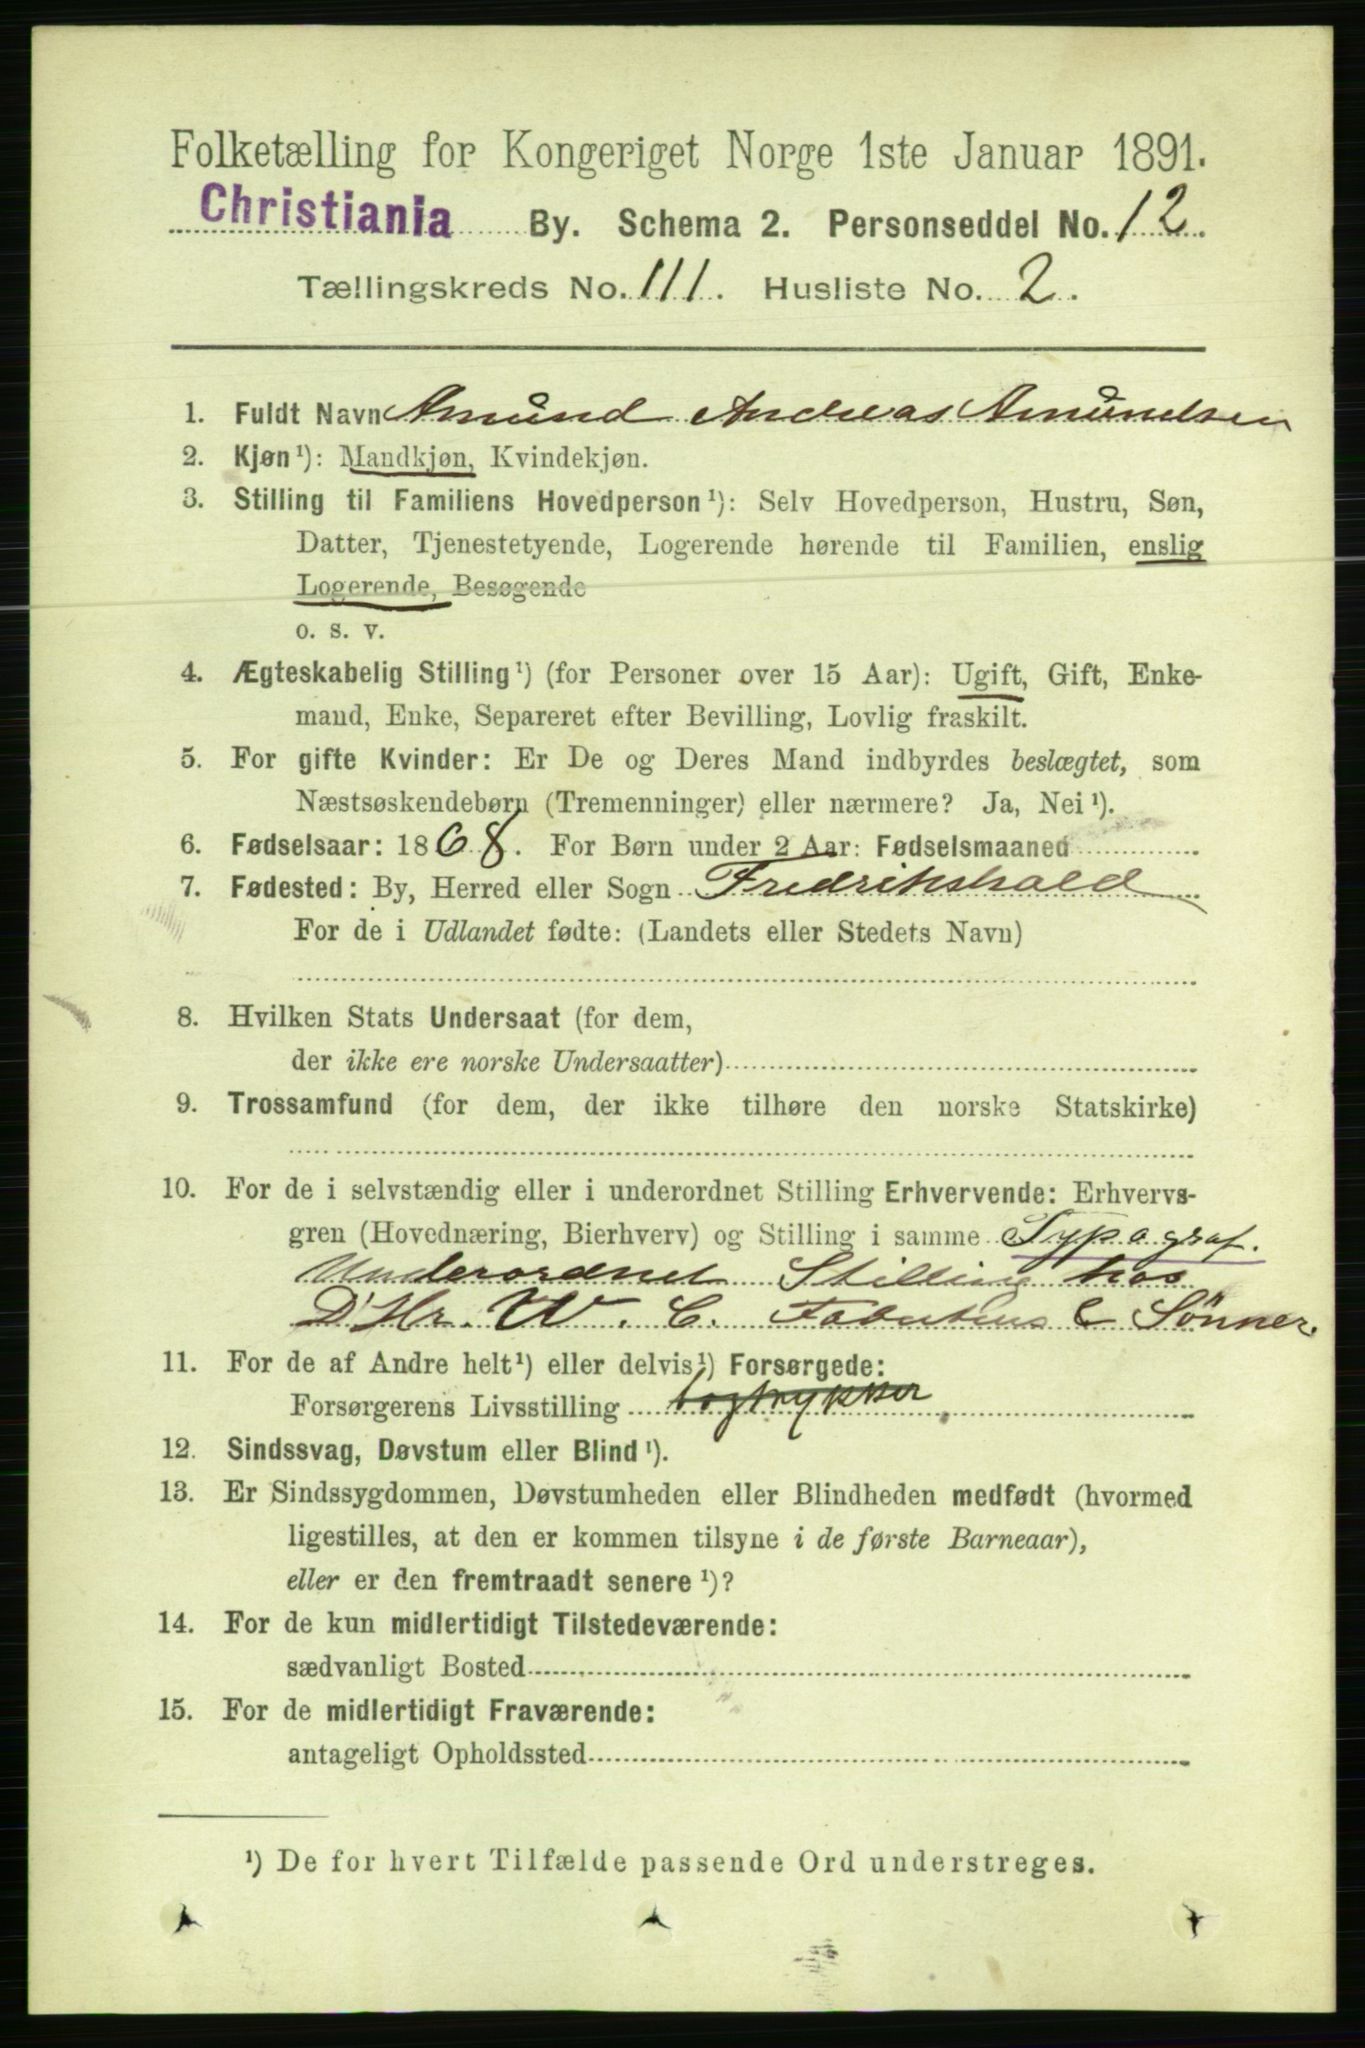 Folketælling for Kongeriget Norge 1ste Januar 1891.
Christiania By. Schema 2. Personseddel No. 12.
Tællingskreds No. 111. Husliste No. 2.
1. Fuldt Navn Amund Andreas Amundsen
2. Kjøn¹): Mandkjøn, Kvindekjøn.
3. Stilling til Familiens Hovedperson¹): Selv Hovedperson, Hustru, Søn,
Datter, Tjenestetyende, Logerende hørende til Familien, enslig
Logerende, Besøgende
o. s. v.
4. Ægteskabelig Stilling¹) (for Personer over 15 Aar): Ugift, Gift, Enke-
mand, Enke, Separeret efter Bevilling, Lovlig fraskilt.
5. For gifte Kvinder: Er De og Deres Mand indbyrdes beslægtet, som
Næstsøskendebørn (Tremenninger) eller nærmere? Ja, Nei¹).
6. Fødselsaar: 1868. For Børn under 2 Aar: Fødselsmaaned
7. Fødested: By, Herred eller Sogn Fredrikshald
For de i Udlandet fødte: (Landets eller Stedets Navn)
8. Hvilken Stats Undersaat (for dem,
der ikke ere norske Undersaatter)
9. Trossamfund (for dem, der ikke tilhøre den norske Statskirke)
10. For de i selvstændig eller i underordnet Stilling Erhvervende: Erhvervs-
gren (Hovednæring, Bierhverv) og Stilling i samme Typograf.
Underordnet Stilling hos
D'Hr. W. C. Fabritius & Sönner.
11. For de af Andre helt¹) eller delvis¹) Forsørgede:
Forsørgerens Livsstilling bogtrykker
12. Sindssvag, Døvstum eller Blind¹).
13. Er Sindssygdommen, Døvstumheden eller Blindheden medfødt (hvormed
ligestilles, at den er kommen tilsyne i de første Barneaar),
eller er den fremtraadt senere¹)?
14. For de kun midlertidigt Tilstedeværende:
sædvanligt Bosted
15. For de midlertidigt Fraværende:
antageligt Opholdssted
¹) De for hvert Tilfælde passende Ord understreges.